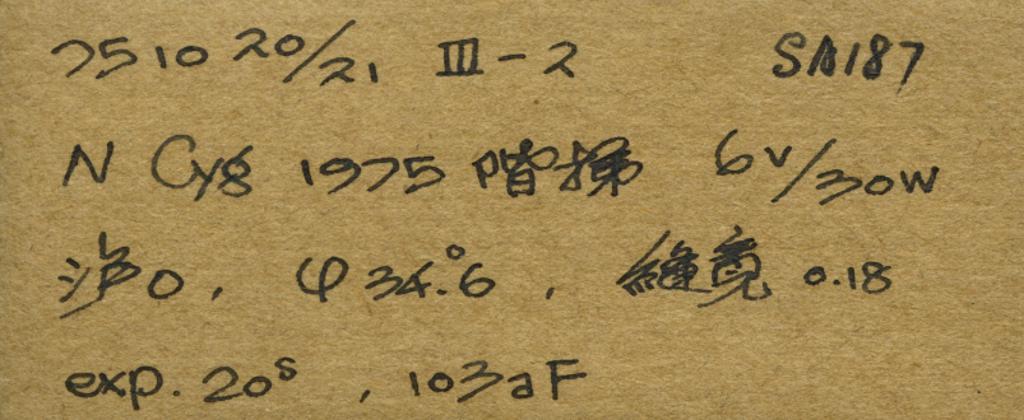 7510 20/21 III-2 SA187
N Cyg 1975 階梯 6V/30W
滤0, φ34.°6, 縫寬 0.18
exp. 20s, 103aF